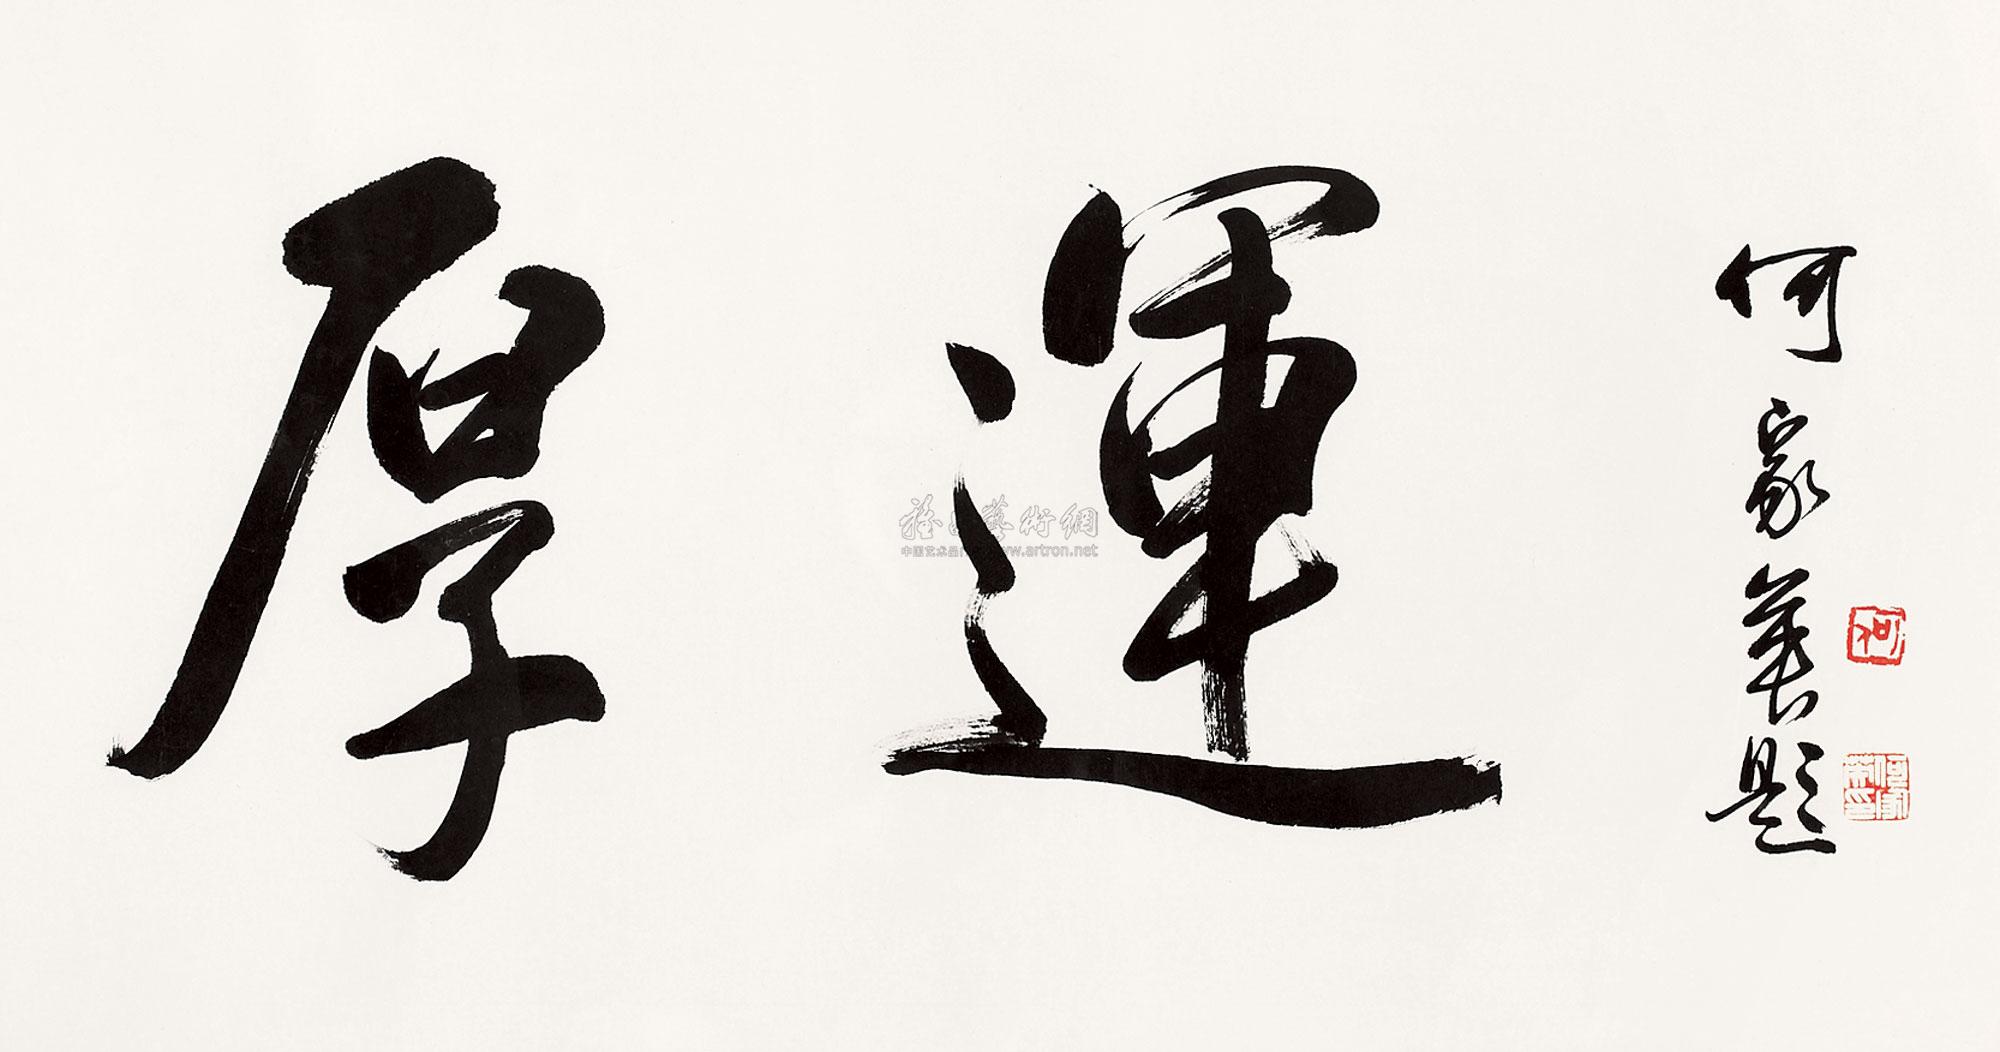 厚運
何家英題
何
何家英印
雅昌藝術網
中国艺术品 www.artron.net